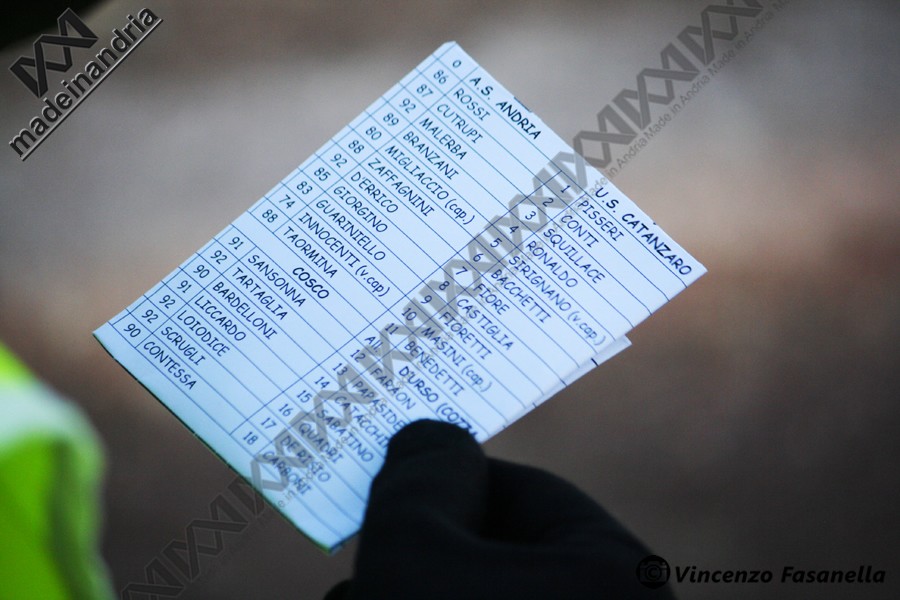 madeinandria
0 A.S. ANDRIA U.S. CATANZARO
86 ROSSI 1 PISSERI
87 CUTRUPI 2 CONTI
92 MALERBA 3 SQUILLACE
89 BRANZANI 4 RONALDO
80 MIGLIACCIO (cap) 5 SIRIGNANO (v.cap)
88 ZAFFAGNINI 6 BACCHETTI
92 DERRICO 7 FIORE
85 GIORGINO 8 CASTIGLIA
83 GUARINIELLO 9 FIORETTI
74 INNOCENTI (v.cap) 10 MASINI (cap)
88 TAORMINA 11 BENEDETTI
COSCO All D'URSO
91 SANSONNA 12 FARAON
92 TARTAGLIA 13
90 BARDELLONI 14
91 LICCARDO 15 SABATINO
92 LOIODICE 16 QUADRI
92 SCRUGLI 17 DE RISIO
90 CONTESSA 18
Made in Andria Made in Andria Made in Andria
Made in Andria
Vincenzo Fasanella